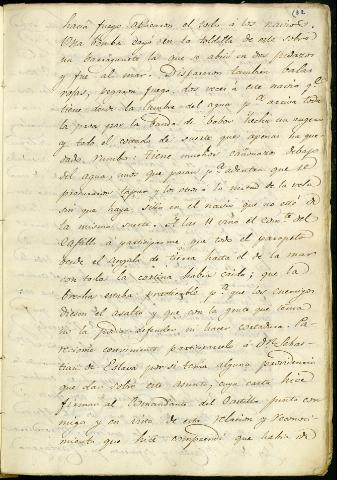 132
hacia fuego atacaron el todo á los navios.
Una bomba cayo en la toldilla de este sobre
un barraganete la que se abrió en dos pedazos
y fue al mar. Dispararon tambien balas
rojas, pegaron fuego dos veces á este navio qe
tiene desde la lumbre del agua pa arriva toda
la proa por la banda de babor hecha un
y todo el costado de suerte que apenas ha que
dado rumbo: tiene muchos cañonazos debajo
del agua, unos que paran pa adentro que se
procuraron tapar y los otros á la mitad de la
sin que haya sitio en el navio que no esté de
la misma suerte. A las 11 vino el Comte del
Castillo á participarme, que todo el parapeto
desde el angulo de tierra hasta el de la mar
con toda la cortina habia caido; que la
brecha estaba practicable pa que los enemigos
diesen el asalto y que con la gente que tenia
no la podia defender ni hacer cortadura. Pa-
reciome conveniente participarselo á Dn Sebas-
tian de Eslava por si tenia alguna providencia
que dar sobre este asunto, cuya carta hice
firmar al Comandante del Castillo junto con-
migo y en vista de esta relacion y reconoci-
miento que hice comprendi que habia de